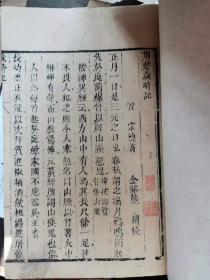 荆楚歲時記
晉 宗懍著 金谿熊 校
正月一日是三元之日也春秋謂之端月雞鳴而起
先於庭前爆竹以辟山臊惡鬼
按神異經云西方山中有人焉其長尺餘一足性
不畏人犯之則令人寒熱名曰山臊以竹著火中
有聲而山臊驚憚元黃經謂山臊鬼也俗
人以為爆竹起於庭燎家國不應濫於王者
長幼悉正衣冠以次拜賀進椒柏酒飲桃湯進屠蘇